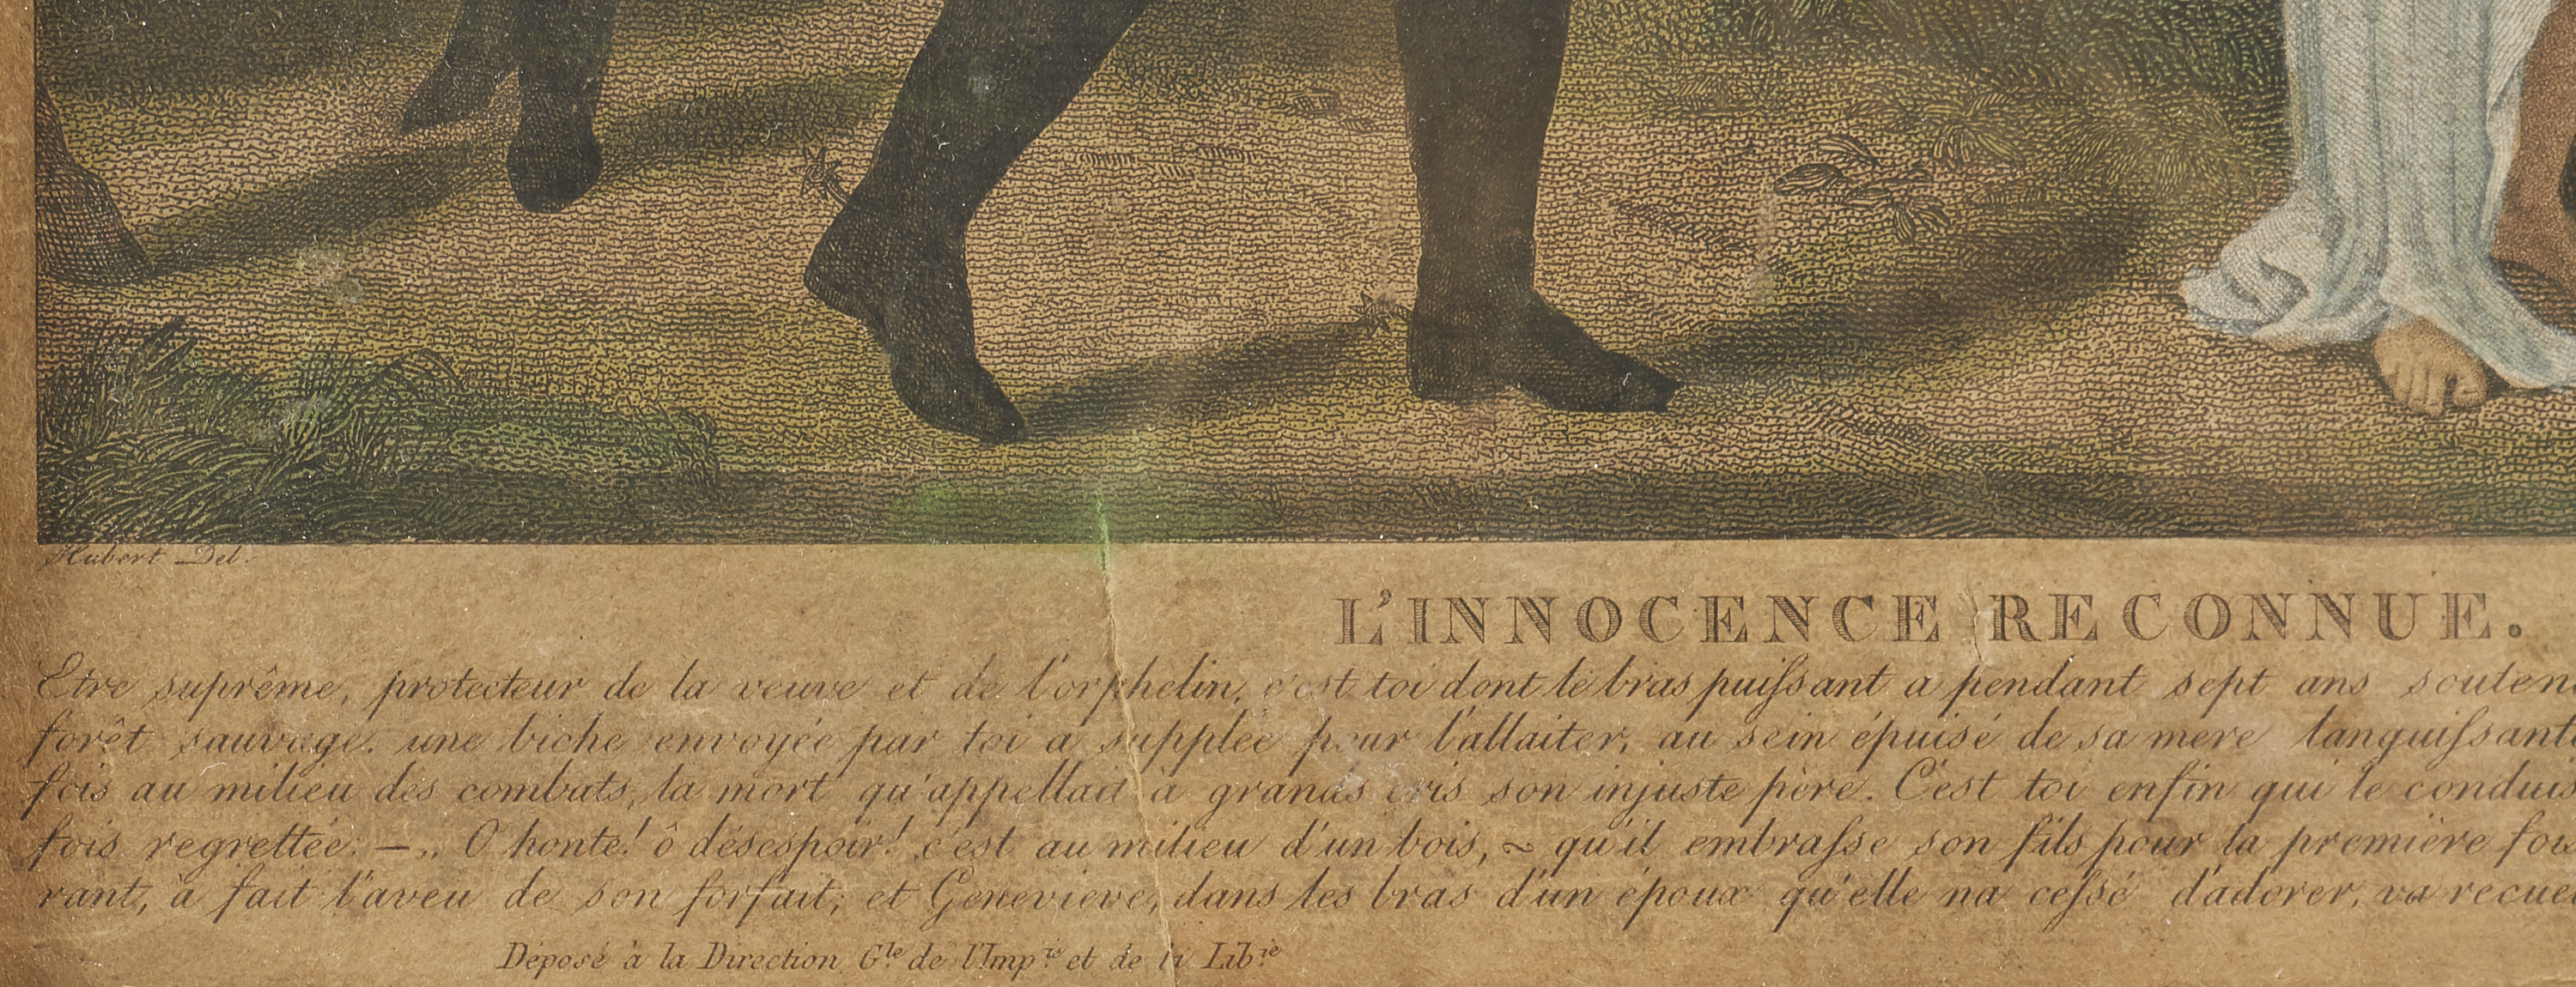 Hubert Del.
L'INNOCENCE RECONNUE.
Etre suprême, protecteur de la veuve et de l'orphelin, c'est toi dont le bras puiſsant a pendant sept ans souten
forêt sauvage. une biche envoyée par toi a supplée pour l'allaiter, au sein épuisé de sa mere languiſsante
fois au milieu des combats, la mort qu'appellait à grands cris son injuste père. C'est toi enfin qui le conduis
fois regrettée. — „ O honte! ô désespoir! c'est au milieu d'un bois, ~ qu'il embraſse son fils pour la première fois
rant, à fait l'aveu de son forfait, et Genevieve, dans les bras d'un époux qu'elle na ceſsé d'adorer, va recue
Déposé à la Direction Gle de l'Impie et de la Librie